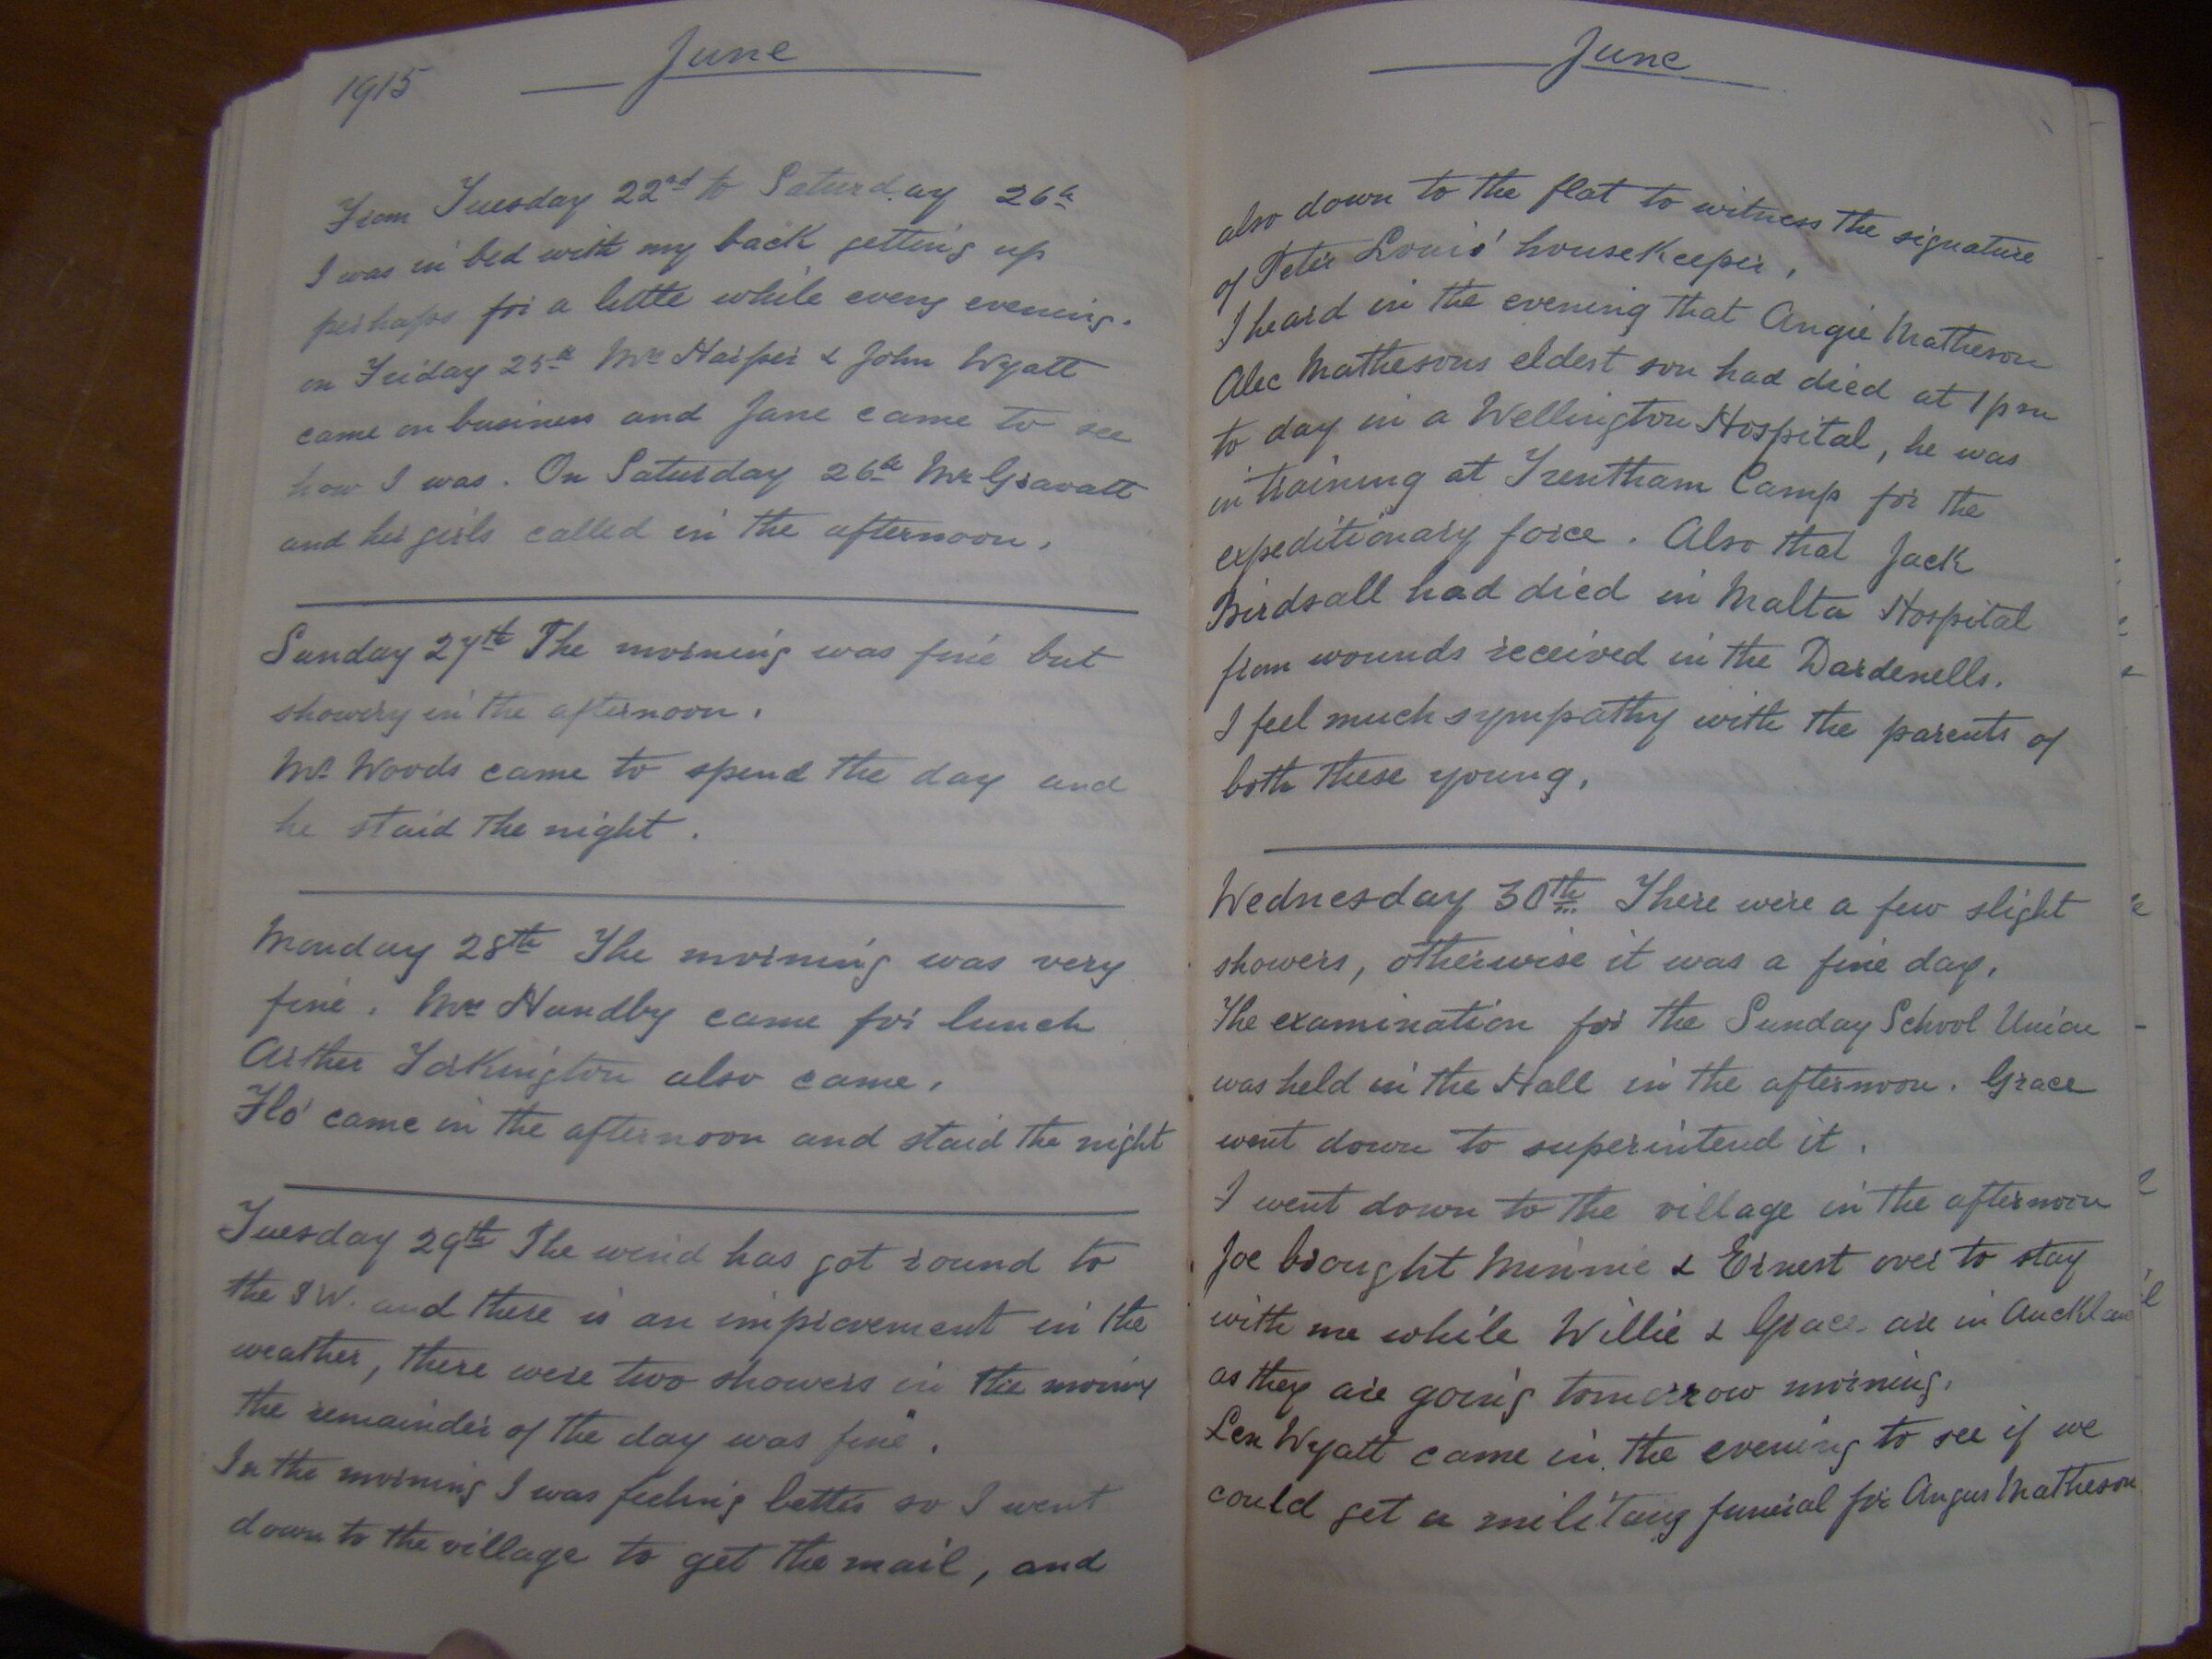 1915
June
From Tuesday 22nd to Saturday 26th
I was in bed with my back getting up
perhaps for a little while every evening.
on Friday 25th Mr Harper & John Wyatt
came on business and Jane came to see
how I was. On Saturday 26th Mr Gravatt
and her girls called in the afternoon.
Sunday 27th The morning was fine but
showery in the afternoon.
Mr Woods came to spend the day and
he staid the night.
Monday 28th The morning was very
fine. Mr Handby came for lunch
Arther Torkington also came.
Flo' came in the afternoon and staid the night
Tuesday 29th The wind has got round to
the SW. and there is an improvement in the
weather, there were two showers in the morning
the remainder of the day was fine.
In the morning I was feeling better so I went
down to the village to get the mail, and
June
also down to the flat to witness the signature
of Peter Louis' housekeeper,
I heard in the evening that Angie Matheson
Alec Mathesons eldest son had died at 1pm
to day in a Wellington Hospital, he was
in training at Trentham Camp for the
expeditionary force. Also that Jack
Birdsall had died in Malta Hospital
from wounds received in the Dardenells.
I feel much sympathy with the parents of
both these young,
Wednesday 30th There were a few slight
showers, otherwise it was a fine day,
The examination for the Sunday School Union
was held in the Hall in the afternoon. Grace
went down to superintend it.
I went down to the village in the afternoon
Joe brought Minnie & Ernest over to stay
with me while Willie & Grace are in Auckland
as they are going tomorrow morning.
Len Wyatt came in the evening to see if we
could get a military funeral for Angus Matheson